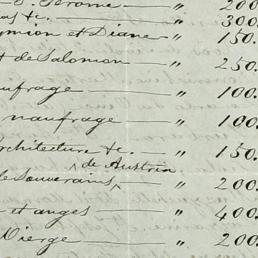 S. Jerome — " 200
&c. — " 300
ymion et Diane — " 150.
t de Salomon — " 250
aufrage — " 100
naufrage — " 100.
rchitecture &c. — " 150
de Austria
de Souverains — " 200
et anges — " 400
Vierge — " 200